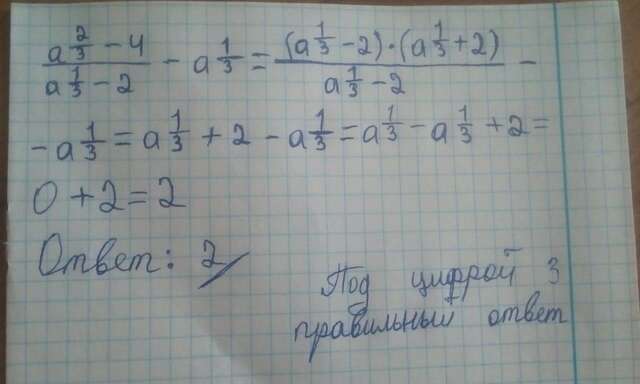 (a^(2/3) - 4)/(a^(1/3) - 2) - a^(1/3) = ((a^(1/3) - 2) · (a^(1/3) + 2))/(a^(1/3) - 2) -
- a^(1/3) = a^(1/3) + 2 - a^(1/3) = a^(1/3) - a^(1/3) + 2 =
0 + 2 = 2
Ответ: 2
Под цифрой 3
правильный ответ